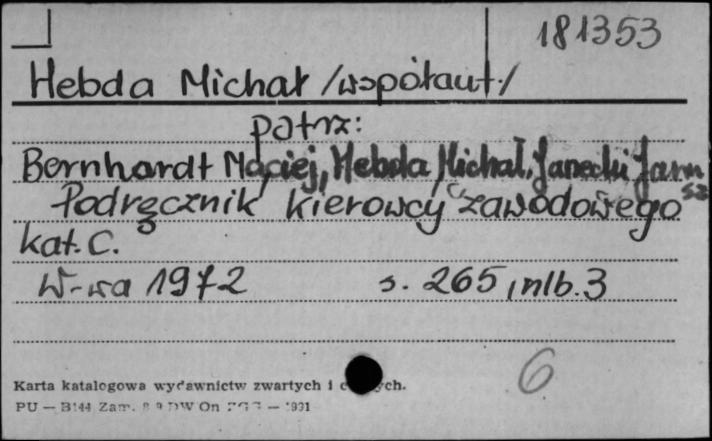 181353
Hebda Michał /współaut./
patrz:
Bernhardt Maciej, Hebda Michał, Janecki Janu
sz
Podręcznik kierowcy zawodowego
kat. C.
W-wa 1972 s. 265, nlb. 3
6
Karta katalogowa wydawnictw zwartych i ch.
PU — B144 Zam. DW On — 1991